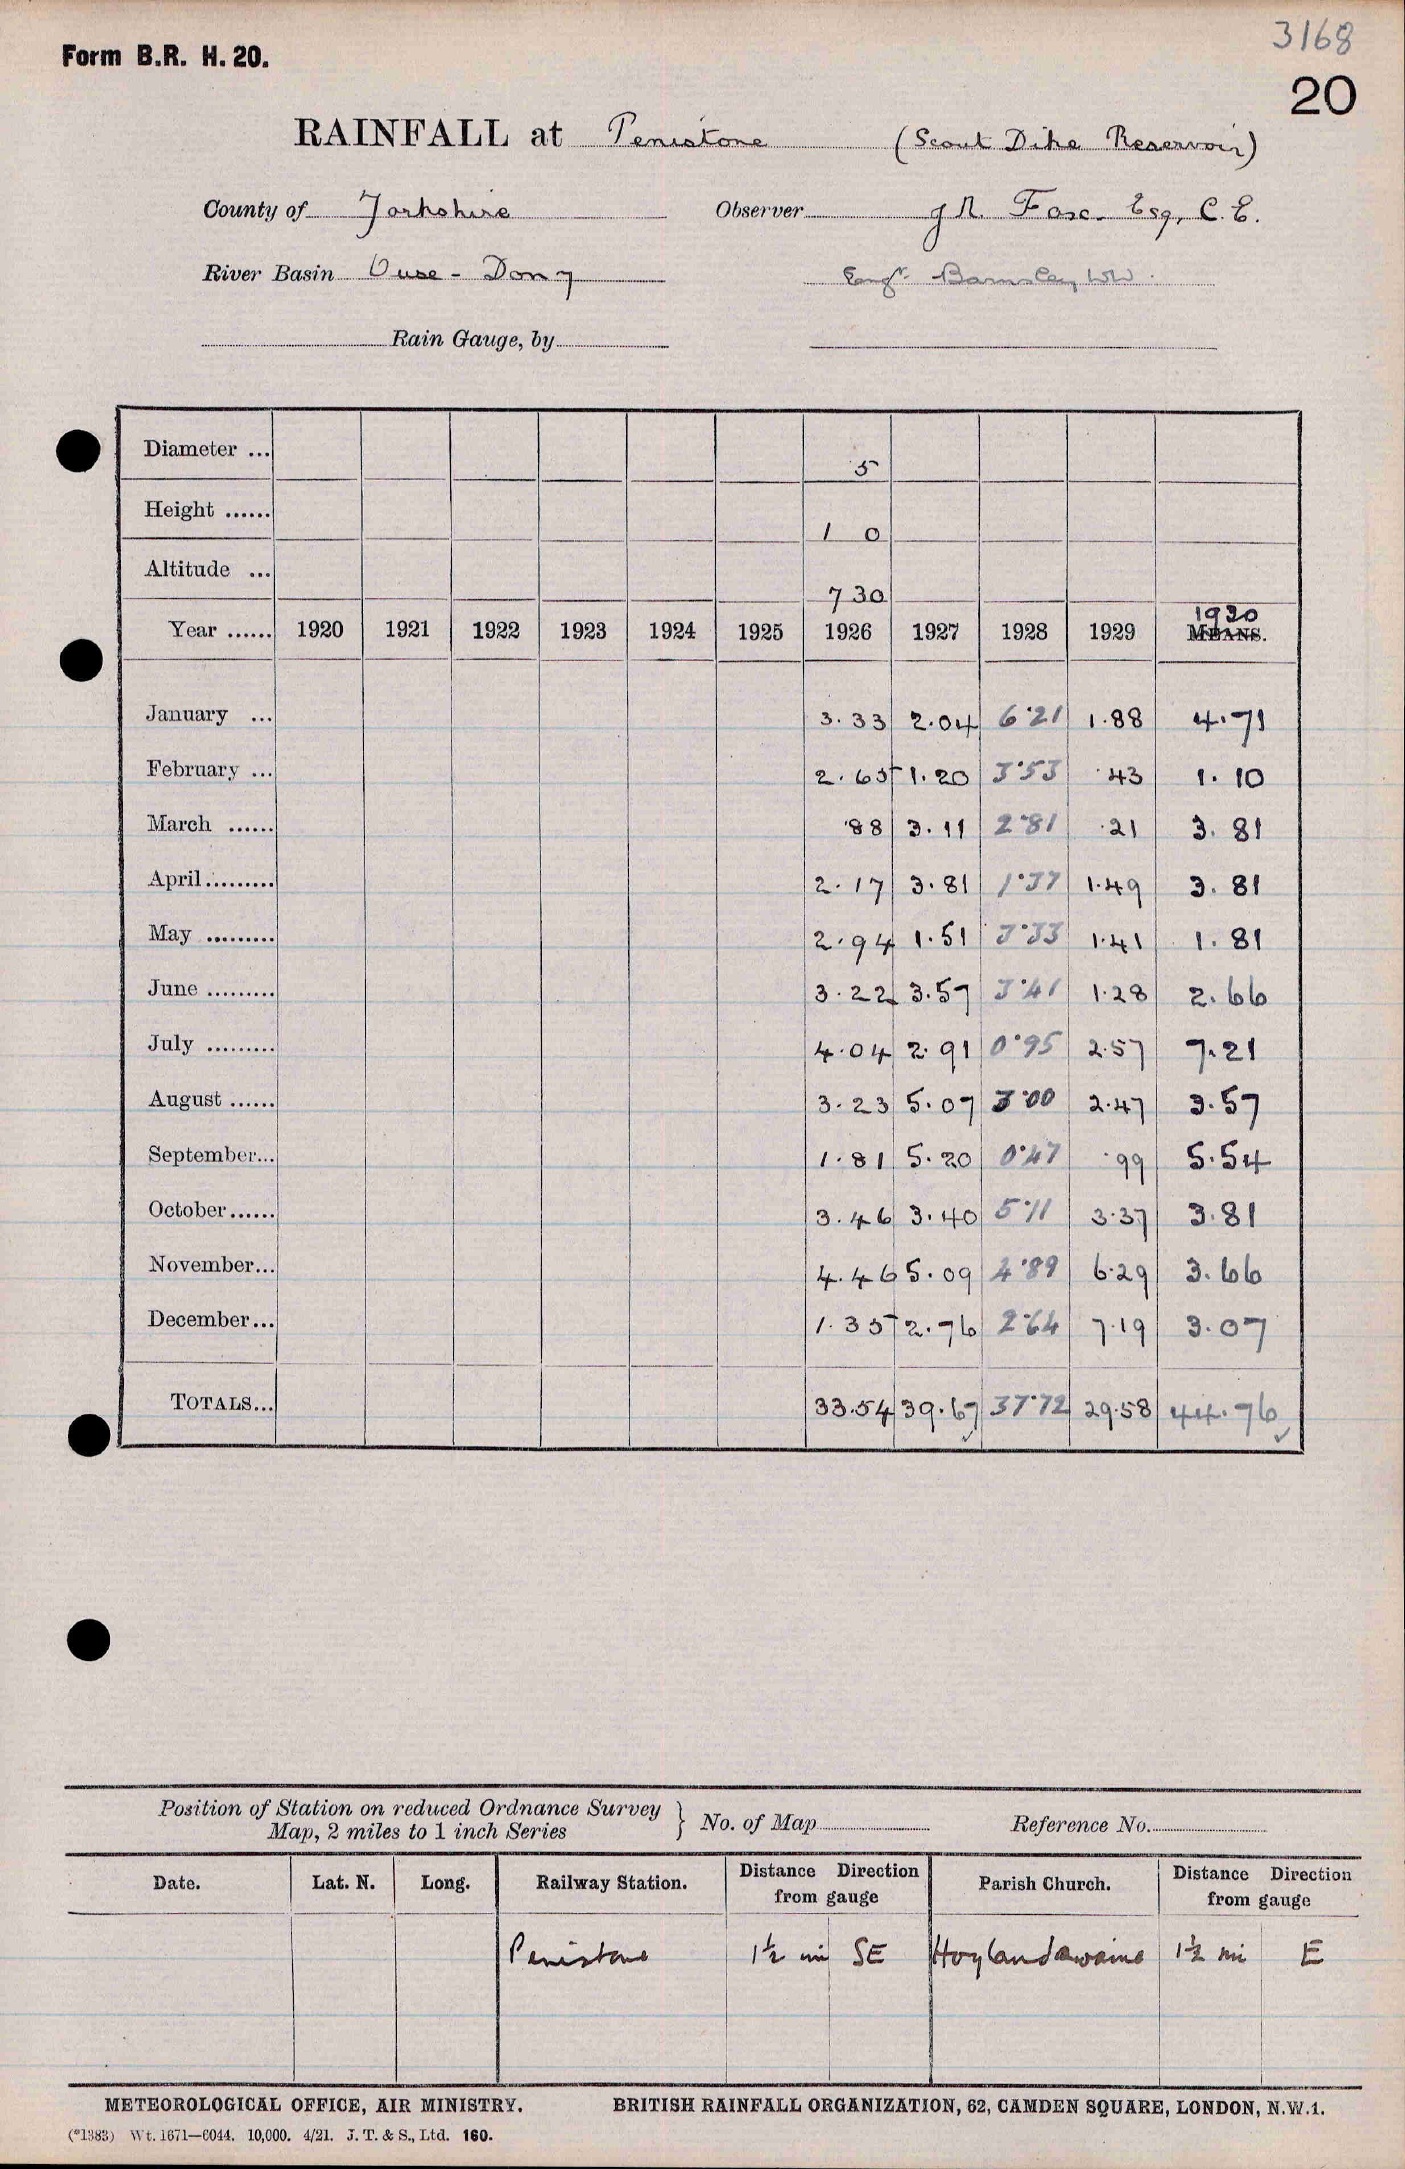 3168
Form B.R. H. 20.
20
RAINFALL at Penistone (Scout Dike Reservoir)
County of Yorkshire Observer J.R. Fox. Esq, C.E.
River Basin Ouse - Don 7 Engr. Barnsley WW.
Rain Gauge, by
Diameter ... 5
Height ...... 1 0
Altitude ... 730
1930
Year ...... 1920 1921 1922 1923 1924 1925 1926 1927 1928 1929 MEANS.
January ... 3.33 2.04 6.21 1.88 4.71
February ... 2.65 1.20 3.53 .43 1.10
March ...... .88 3.11 2.81 .21 3.81
April ......... 2.17 3.81 1.37 1.49 3.81
May ......... 2.94 1.51 3.33 1.41 1.81
June ......... 3.22 3.57 3.41 1.28 2.66
July ......... 4.04 2.91 0.95 2.57 7.21
August ...... 3.23 5.07 3.00 2.47 3.57
September... 1.81 5.20 0.47 .99 5.54
October ...... 3.46 3.40 5.11 3.37 3.81
November... 4.46 5.09 4.89 6.29 3.66
December... 1.35 2.76 2.64 7.19 3.07
TOTALS... 33.54 39.67 37.72 29.58 44.76
Position of Station on reduced Ordnance Survey
Map, 2 miles to 1 inch Series } No. of Map Reference No.
Date. Lat. N. Long. Railway Station. Distance Direction from gauge Parish Church. Distance Direction from gauge
Penistone 1½ mi SE Hoylandswaine 1½ mi E
METEOROLOGICAL OFFICE, AIR MINISTRY. BRITISH RAINFALL ORGANIZATION, 62, CAMDEN SQUARE, LONDON, N.W.1.
(*1383) Wt. 1671—6044. 10,000. 4/21. J. T. & S., Ltd. 160.